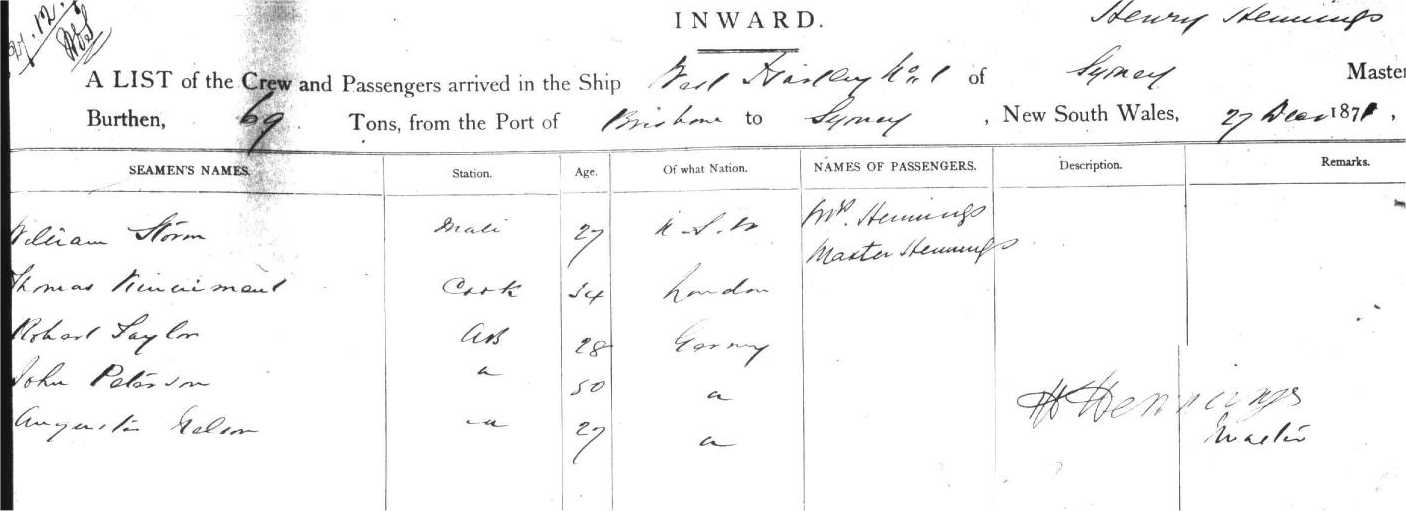 27.12.
INWARD.
Henry Hennings
A LIST of the Crew and Passengers arrived in the Ship West Hartley No 1 of Sydney Master
Burthen, 69 Tons, from the Port of Brisbane to Sydney, New South Wales, 27 Dec 1871,
SEAMEN'S NAMES. Station. Age. Of what Nation. NAMES OF PASSENGERS. Description. Remarks.
William Storm Mate 27 N.S.W Mrs. Hennings
Master Hennings
Thomas 54 Cook London
Robert Taylor AB 28 Germny
John Peterson " 50 "
Augustus Nelson " 27 "
H Hennings
Master